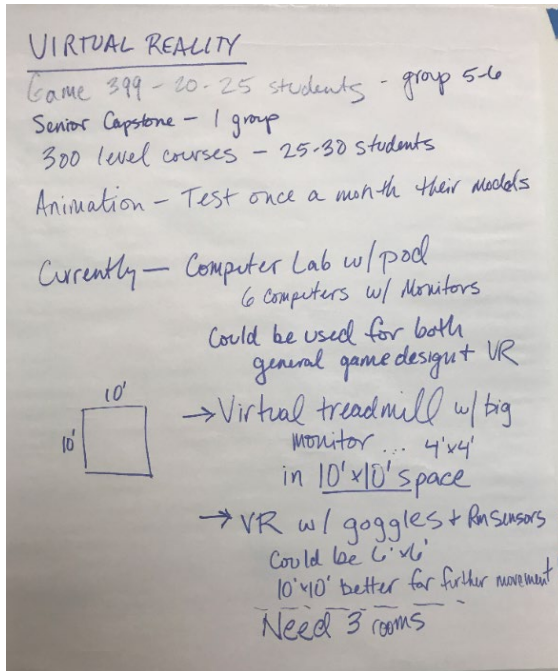 VIRTUAL REALITY
Game 399 - 20-25 students - group 5-6
Senior Capstone - 1 group
300 level courses - 25-30 students
Animation - Test once a month their models
Currently - Computer Lab w/ pod
6 computers w/ Monitors
Could be used for both
general game design + VR
10'
10'
→ Virtual treadmill w/ big
monitor ... 4'x4'
in 10'x10' space
→ VR w/ goggles + Rm Sensors
Could be 6'x6'
10'x10' better for further movement
Need 3 rooms